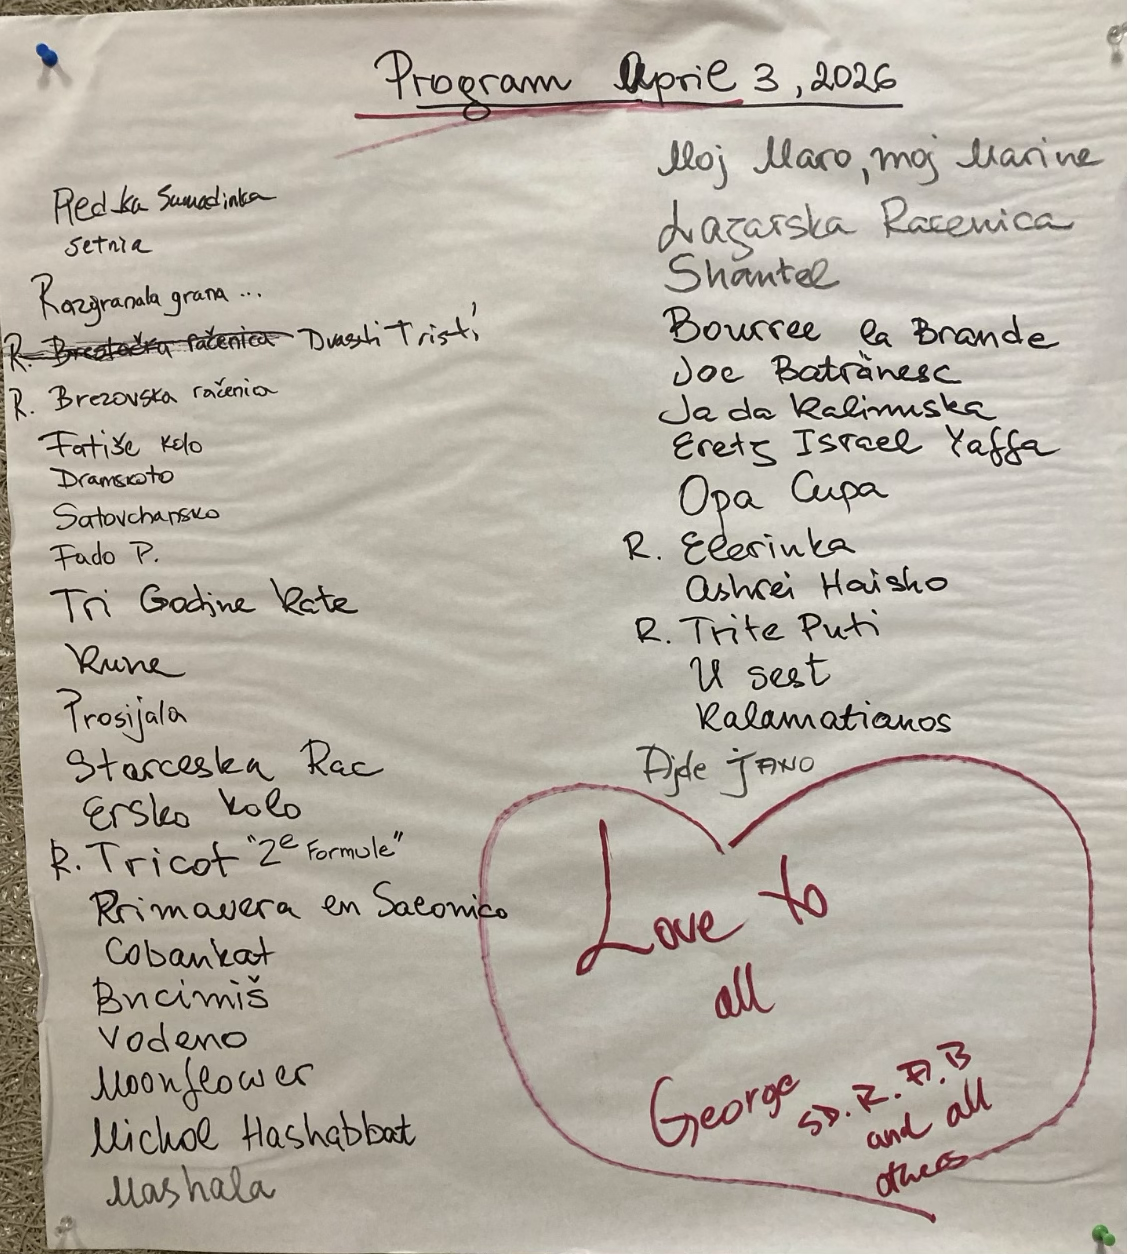 Program Aprile 3, 2026
Redka Sumadinka
Setnia
Razgranala grana ...
R. Dvasti Tristi
R. Brezovska račenica
Fatiše Kolo
Dramskoto
Satovchansko
Fado P.
Tri Godine Kate
Rune
Prosijala
Starceska Rac
Ersko Kolo
R. Tricot "2e Formule"
Primavera en Salonico
Cobankat
Bucimiš
Vodeno
Moonflower
Michol Hashabbat
Mashala
Moj Maro, moj Marine
Lazarska Racenica
Shantel
Bourree la Brande
Joc Batrânesc
Jada Kalinuska
Eretz Israel Yaffa
Opa Cupa
R. Elerinka
Ashrei Haisho
R. Trite Puti
U sest
Kalamatianos
Ajde JANO
Love to
all
George
SD. R. A. B
and all
others